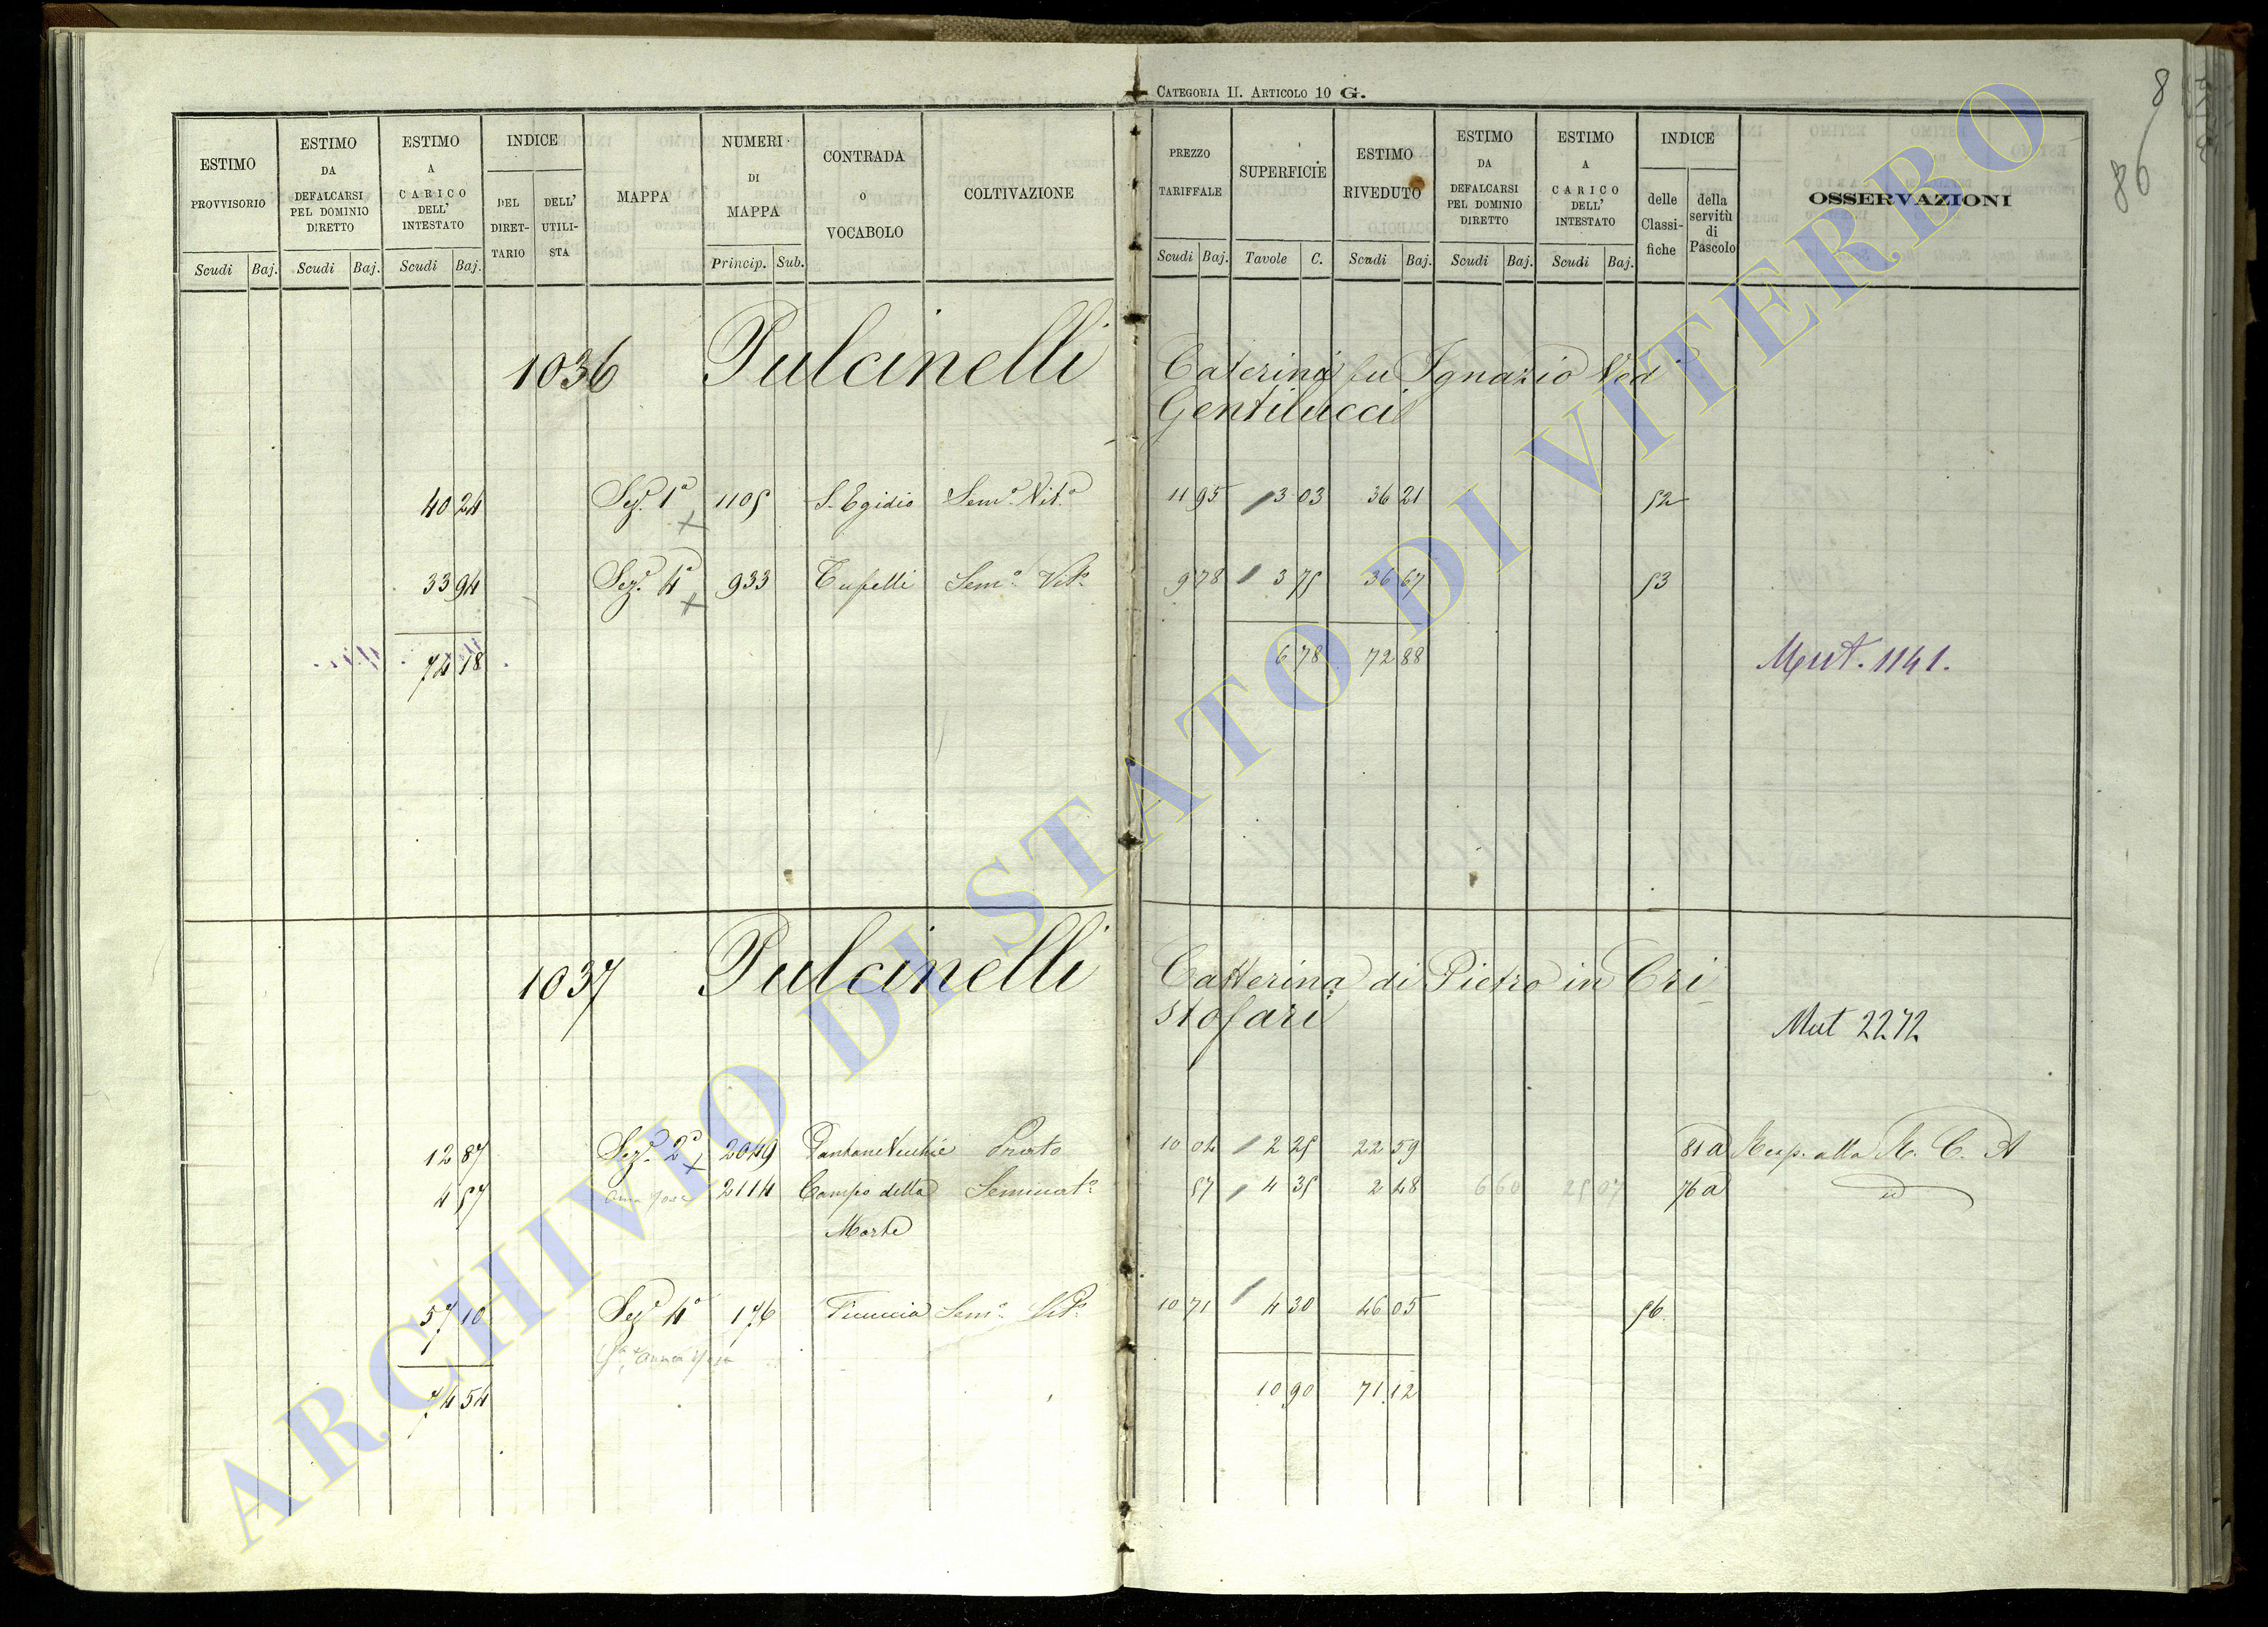 CATEGORIA II. ARTICOLO 10 G.
8
86
ESTIMO PROVVISORIO Scudi Baj.
ESTIMO DA DEFALCARSI PEL DOMINIO DIRETTO Scudi Baj.
ESTIMO A CARICO DELL' INTESTATO Scudi Baj.
INDICE DEL DIRET-TARIO DELL' UTILI-STA
MAPPA
NUMERI DI MAPPA Princip. Sub.
CONTRADA O VOCABOLO
COLTIVAZIONE
PREZZO TARIFFALE Scudi Baj.
SUPERFICIE Tavole C.
ESTIMO RIVEDUTO Scudi Baj.
ESTIMO DA DEFALCARSI PEL DOMINIO DIRETTO Scudi Baj.
ESTIMO A CARICO DELL' INTESTATO Scudi Baj.
INDICE delle Classi-fiche della servitù di Pascolo
OSSERVAZIONI
1036 Pulcinelli Caterina fu Ignazio Ved
Gentilucci
40 24 Sez. 1a 1105 S. Egidio Semo Vito 11 95 3 03 36 21 52
33 94 Sez. 4a 933 Cupelli Semo Vito 9 78 3 75 36 67 53
74 18 6 78 72 88 Mut. 1141.
1037 Pulcinelli Catterina di Pietro in Cri
stofari
Mut 2272
12 87 Sez. 2a 2049 Pantane Vecchie Prato 10 04 2 25 22 59 81 a Resp. alla R. C. A
4 57 2114 Campo della Seminato 57 4 35 2 48 6 60 25 07 76 a id
Morte
57 10 Sez. 4a 176 Ficuccia Semo Vito 10 71 4 30 46 05 56
74 54 10 90 71 12
ARCHIVIO DI STATO DI VITERBO